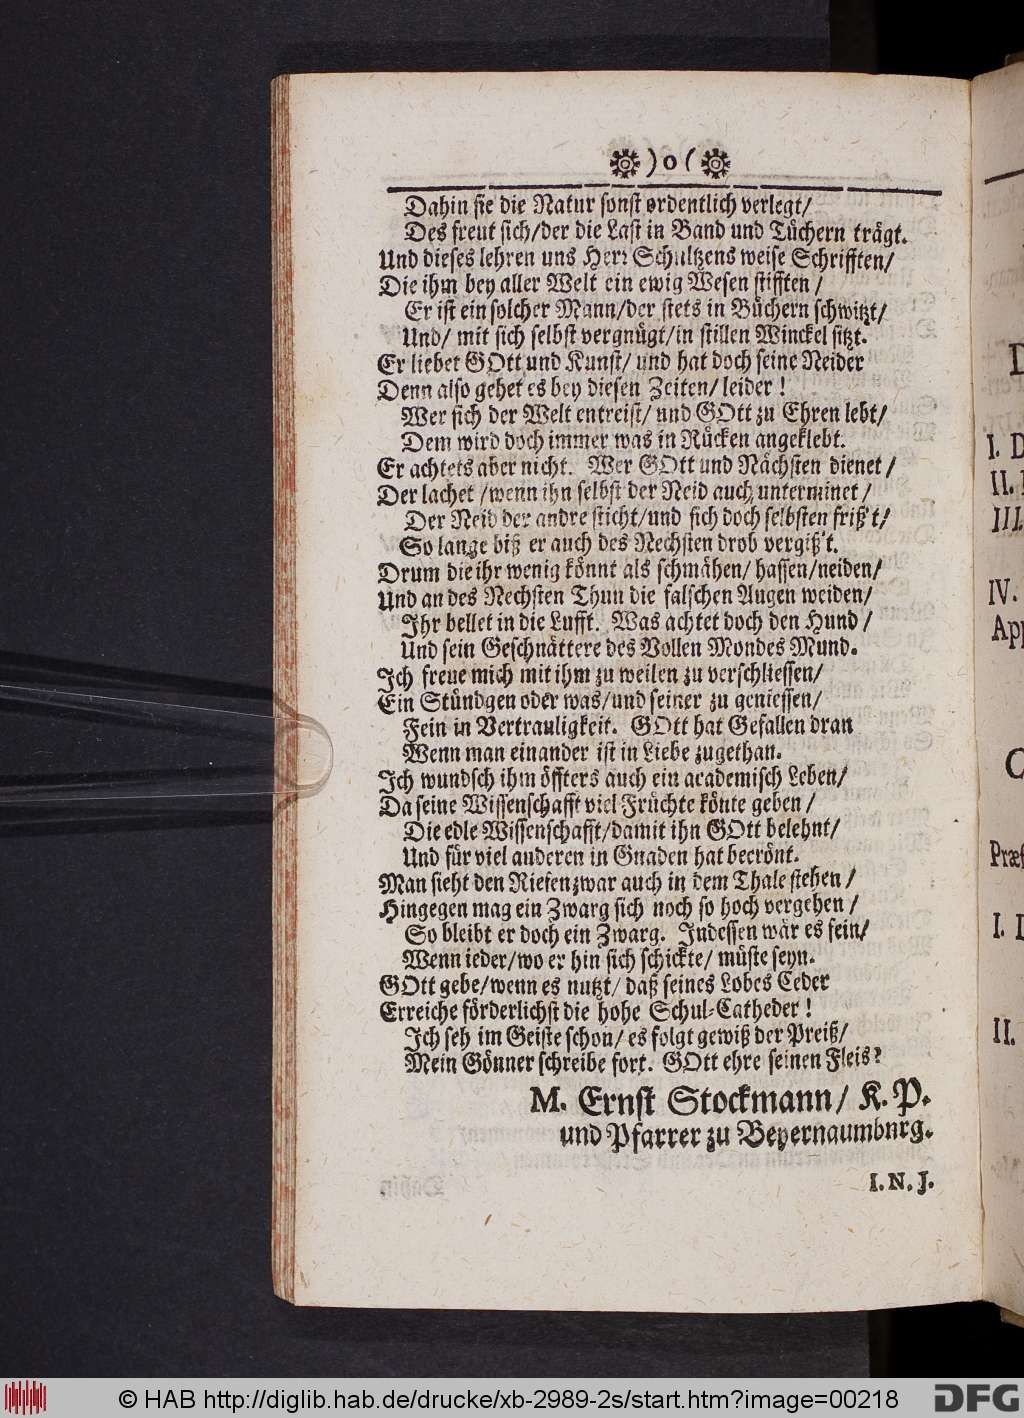 )o(
Dahin sie die Natur sonst ordentlich verlegt/
Des freut sich/der die Last in Band und Tüchern trägt.
Und dieses lehren uns Herr Schultzens weise Schrifften/
Die ihm bey aller Welt ein ewig Wesen stifften /
Er ist ein solcher Mann/der stets in Büchern schwitzt/
Und/ mit sich selbst vergnügt/in stillen Winckel sitzt.
Er liebet GOtt und Kunst/ und hat doch seine Neider
Denn also gehet es bey diesen Zeiten/ leider !
Wer sich der Welt entreist/ und GOtt zu Ehren lebt/
Dem wird doch immer was in Rücken angeklebt.
Er achtets aber nicht. Wer GOtt und Nächsten dienet /
Der lachet /wenn ihn selbst der Neid auch unterminet /
Der Neid der andre sticht/und sich doch selbsten friß't/
So lange biß er auch des Nechsten drob vergiß't.
Drum die ihr wenig könnt als schmähen/ hassen/neiden/
Und an des Nechsten Thun die falschen Augen weiden/
Ihr bellet in die Lufft. Was achtet doch den Hund /
Und sein Geschnättere des Vollen Mondes Mund.
Ich freue mich mit ihm zu weilen zu verschliessen/
Ein Stündgen oder was/und seiner zu geniessen/
Fein in Vertrauligkeit. GOtt hat Gefallen dran
Wenn man einander ist in Liebe zugethan.
Ich wundsch ihm öffters auch ein academisch Leben/
Da seine Wissenschafft viel Früchte könte geben /
Die edle Wissenschafft/damit ihn GOtt belehnt/
Und für viel anderen in Gnaden hat becrönt.
Man sieht den Riesen zwar auch in dem Thale stehen /
Hingegen mag ein Zwarg sich noch so hoch vergehen /
So bleibt er doch ein Zwarg. Indessen wär es fein/
Wenn ieder/wo er hin sich schickte/ müste seyn.
GOtt gebe/wenn es nutzt/ daß seines Lobes Ceder
Erreiche förderlichst die hohe Schul-Catheder !
Ich seh im Geiste schon/ es folgt gewiß der Preiß/
Mein Gönner schreibe fort. GOtt ehre seinen Fleis?
M. Ernst Stockmann/ K. P.
und Pfarrer zu Beyernaumbnrg.
I. N. J.
I. D
II.
III.
IV.
App
C
Præf
I.
II.
© HAB http://diglib.hab.de/drucke/xb-2989-2s/start.htm?image=00218
DFG